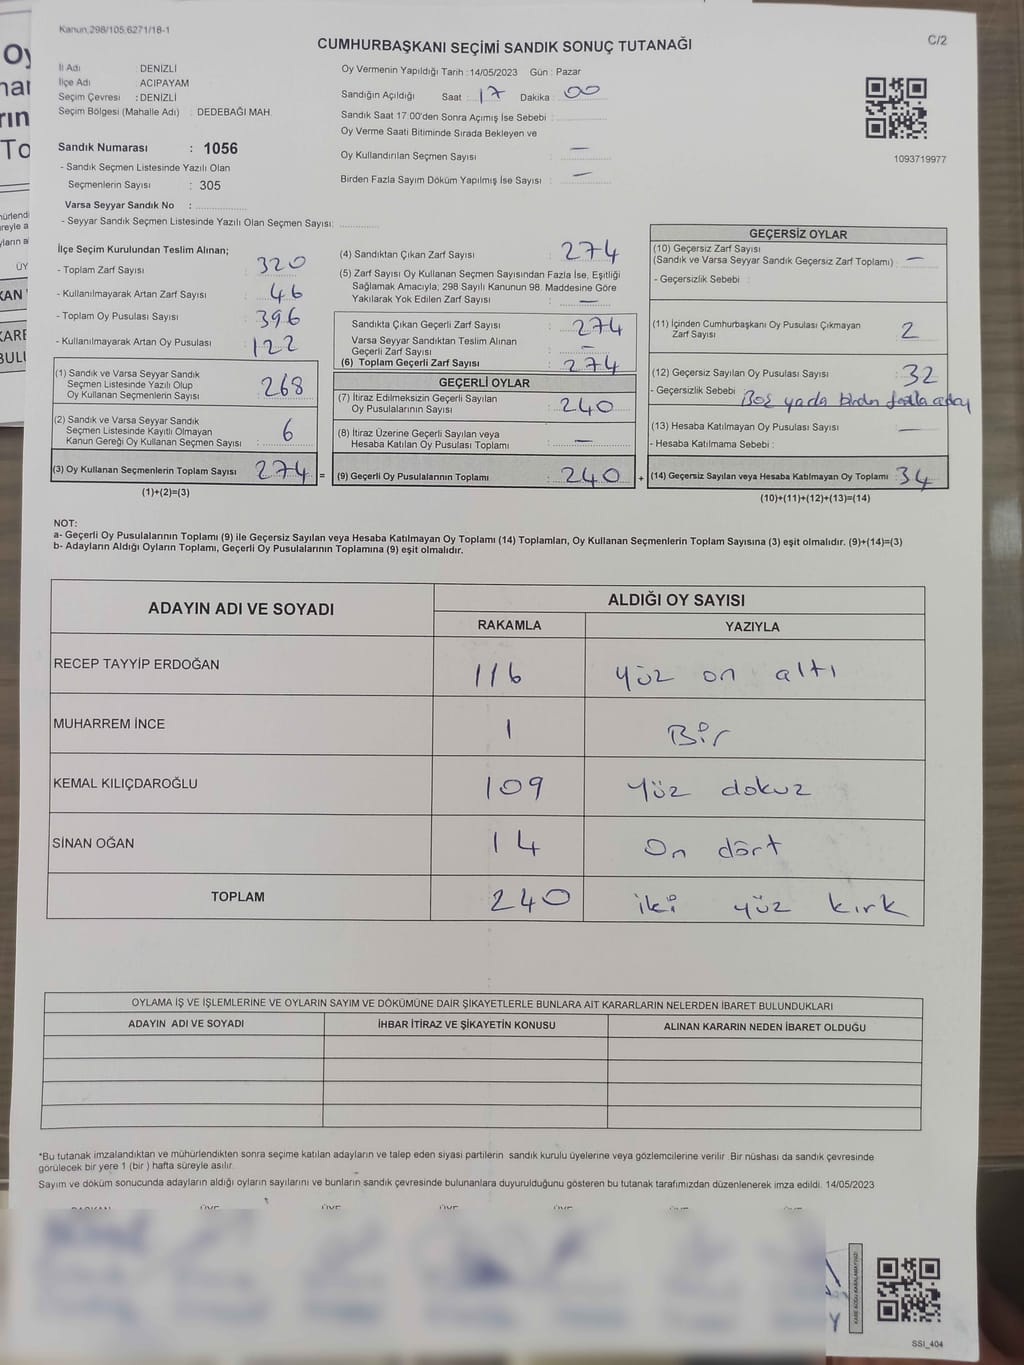 Kanun.298/105.6271/18-1
C/2
CUMHURBAŞKANI SEÇİMİ SANDIK SONUÇ TUTANAĞI
İl Adı : DENİZLİ
İlçe Adı : ACIPAYAM
Seçim Çevresi : DENİZLİ
Seçim Bölgesi (Mahalle Adı) : DEDEBAĞI MAH.
Sandık Numarası : 1056
- Sandık Seçmen Listesinde Yazılı Olan
Seçmenlerin Sayısı : 305
Varsa Seyyar Sandık No :
- Seyyar Sandık Seçmen Listesinde Yazılı Olan Seçmen Sayısı:
Oy Vermenin Yapıldığı Tarih : 14/05/2023 Gün : Pazar
Sandığın Açıldığı Saat : 17 Dakika : 00
Sandık Saat 17:00'den Sonra Açımış İse Sebebi :
Oy Verme Saati Bitiminde Sırada Bekleyen ve
Oy Kullandırılan Seçmen Sayısı : —
Birden Fazla Sayım Döküm Yapılmış İse Sayısı : —
1093719977
İlçe Seçim Kurulundan Teslim Alınan;
- Toplam Zarf Sayısı : 320
- Kullanılmayarak Artan Zarf Sayısı : 46
- Toplam Oy Pusulası Sayısı : 396
- Kullanılmayarak Artan Oy Pusulası : 122
(1) Sandık ve Varsa Seyyar Sandık
Seçmen Listesinde Yazılı Olup
Oy Kullanan Seçmenlerin Sayısı : 268
(2) Sandık ve Varsa Seyyar Sandık
Seçmen Listesinde Kayıtlı Olmayan
Kanun Gereği Oy Kullanan Seçmen Sayısı : 6
(3) Oy Kullanan Seçmenlerin Toplam Sayısı : 274 =
(1)+(2)=(3)
(4) Sandıktan Çıkan Zarf Sayısı : 274
(5) Zarf Sayısı Oy Kullanan Seçmen Sayısından Fazla İse, Eşitliği
Sağlamak Amacıyla; 298 Sayılı Kanunun 98. Maddesine Göre
Yakılarak Yok Edilen Zarf Sayısı : —
Sandıkta Çıkan Geçerli Zarf Sayısı : 274
Varsa Seyyar Sandıktan Teslim Alınan
Geçerli Zarf Sayısı : —
(6) Toplam Geçerli Zarf Sayısı : 274
GEÇERLİ OYLAR
(7) İtiraz Edilmeksizin Geçerli Sayılan
Oy Pusulalarının Sayısı : 240
(8) İtiraz Üzerine Geçerli Sayılan veya
Hesaba Katılan Oy Pusulası Toplamı : —
(9) Geçerli Oy Pusulalarının Toplamı : 240 +
GEÇERSİZ OYLAR
(10) Geçersiz Zarf Sayısı
(Sandık ve Varsa Seyyar Sandık Geçersiz Zarf Toplamı) : —
- Geçersizlik Sebebi :
(11) İçinden Cumhurbaşkanı Oy Pusulası Çıkmayan
Zarf Sayısı : 2
(12) Geçersiz Sayılan Oy Pusulası Sayısı : 32
- Geçersizlik Sebebi : Boş yada birden fazla aday
(13) Hesaba Katılmayan Oy Pusulası Sayısı : —
- Hesaba Katılmama Sebebi :
(14) Geçersiz Sayılan veya Hesaba Katılmayan Oy Toplamı : 34
(10)+(11)+(12)+(13)=(14)
NOT:
a- Geçerli Oy Pusulalarının Toplamı (9) ile Geçersiz Sayılan veya Hesaba Katılmayan Oy Toplamı (14) Toplamları, Oy Kullanan Seçmenlerin Toplam Sayısına (3) eşit olmalıdır. (9)+(14)=(3)
b- Adayların Aldığı Oyların Toplamı, Geçerli Oy Pusulalarının Toplamına (9) eşit olmalıdır.
ADAYIN ADI VE SOYADI
ALDIĞI OY SAYISI
RAKAMLA YAZIYLA
RECEP TAYYİP ERDOĞAN 116 yüz on altı
MUHARREM İNCE 1 Bir
KEMAL KILIÇDAROĞLU 109 yüz dokuz
SİNAN OĞAN 14 On dört
TOPLAM 240 iki yüz kırk
OYLAMA İŞ VE İŞLEMLERİNE VE OYLARIN SAYIM VE DÖKÜMÜNE DAİR ŞİKAYETLERLE BUNLARA AİT KARARLARIN NELERDEN İBARET BULUNDUKLARI
ADAYIN ADI VE SOYADI İHBAR İTİRAZ VE ŞİKAYETİN KONUSU ALINAN KARARIN NEDEN İBARET OLDUĞU
*Bu tutanak imzalandıktan ve mühürlendikten sonra seçime katılan adayların ve talep eden siyasi partilerin sandık kurulu üyelerine veya gözlemcilerine verilir. Bir nüshası da sandık çevresinde
görülecek bir yere 1 (bir ) hafta süreyle asılır.
Sayım ve döküm sonucunda adayların aldığı oyların sayılarını ve bunların sandık çevresinde bulunanlara duyurulduğunu gösteren bu tutanak tarafımızdan düzenlenerek imza edildi. 14/05/2023
SSİ_404